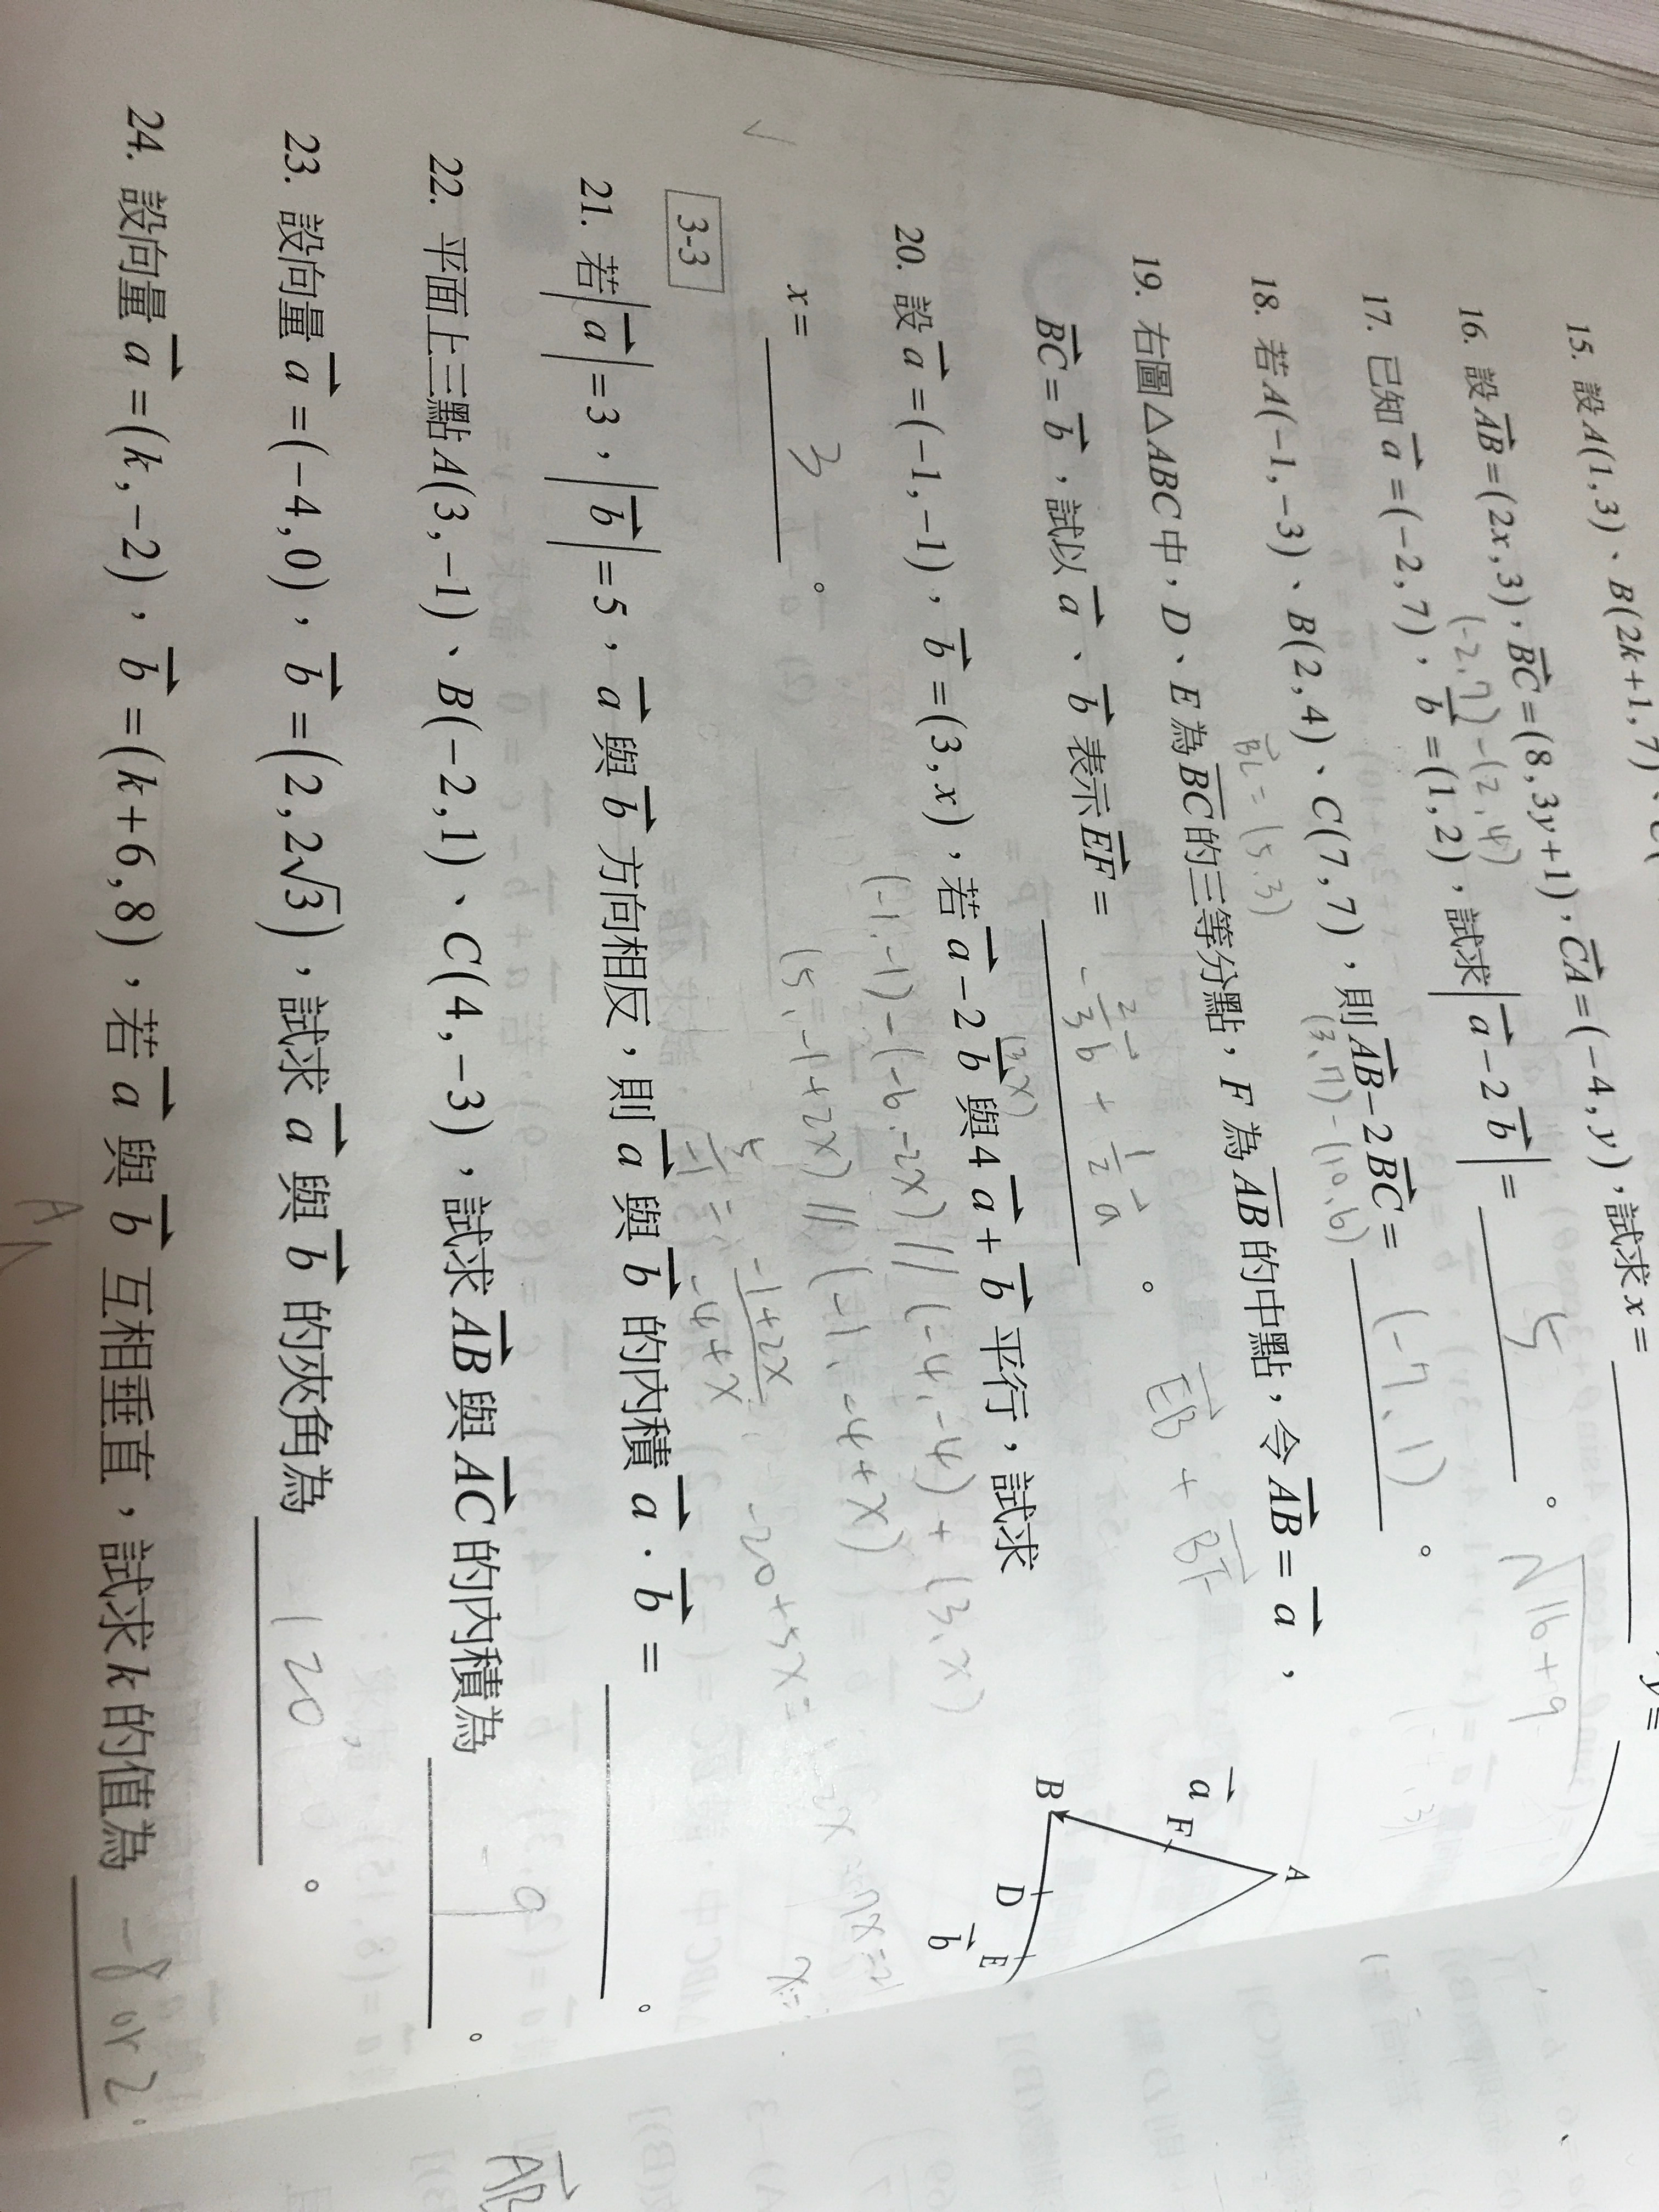 15. 設A(1,3)、B(2k+1,7)、
16. 設AB=(2x,3),BC=(8,3y+1),CA=(-4,y),試求x= , y=
(-2,7)-(2,4)
17. 已知a=(-2,7),b=(1,2),試求|a-2b|= 5 。
√16+9
BC=(5,3)
18. 若A(-1,-3)、B(2,4)、C(7,7),則AB-2BC= (-7,1) 。
(3,7)-(10,6)
19. 右圖△ABC中,D、E為BC的三等分點,F為AB的中點,令AB=a,
BC=b,試以a、b表示EF= -2/3b+1/2a 。
EB+BF
A
a F
B D E
b
20. 設a=(-1,-1),b=(3,x),若a-2b與4a+b平行,試求
(3,x)
(-1,-1)-(-6,-2x)//(-4,-4)+(3,x)
(5,-1+2x)//(-1,-4+x)
x= 3 。
5/-1=-1+2x/-4+x
-20+5x=
3-3
21. 若|a|=3,|b|=5,a與b方向相反,則a與b的內積a·b= 。
22. 平面上三點A(3,-1)、B(-2,1)、C(4,-3),試求AB與AC的內積為 -9 。
23. 設向量a=(-4,0),b=(2,2√3),試求a與b的夾角為 120° 。
24. 設向量a=(k,-2),b=(k+6,8),若a與b互相垂直,試求k的值為 -8 or 2 .
AB